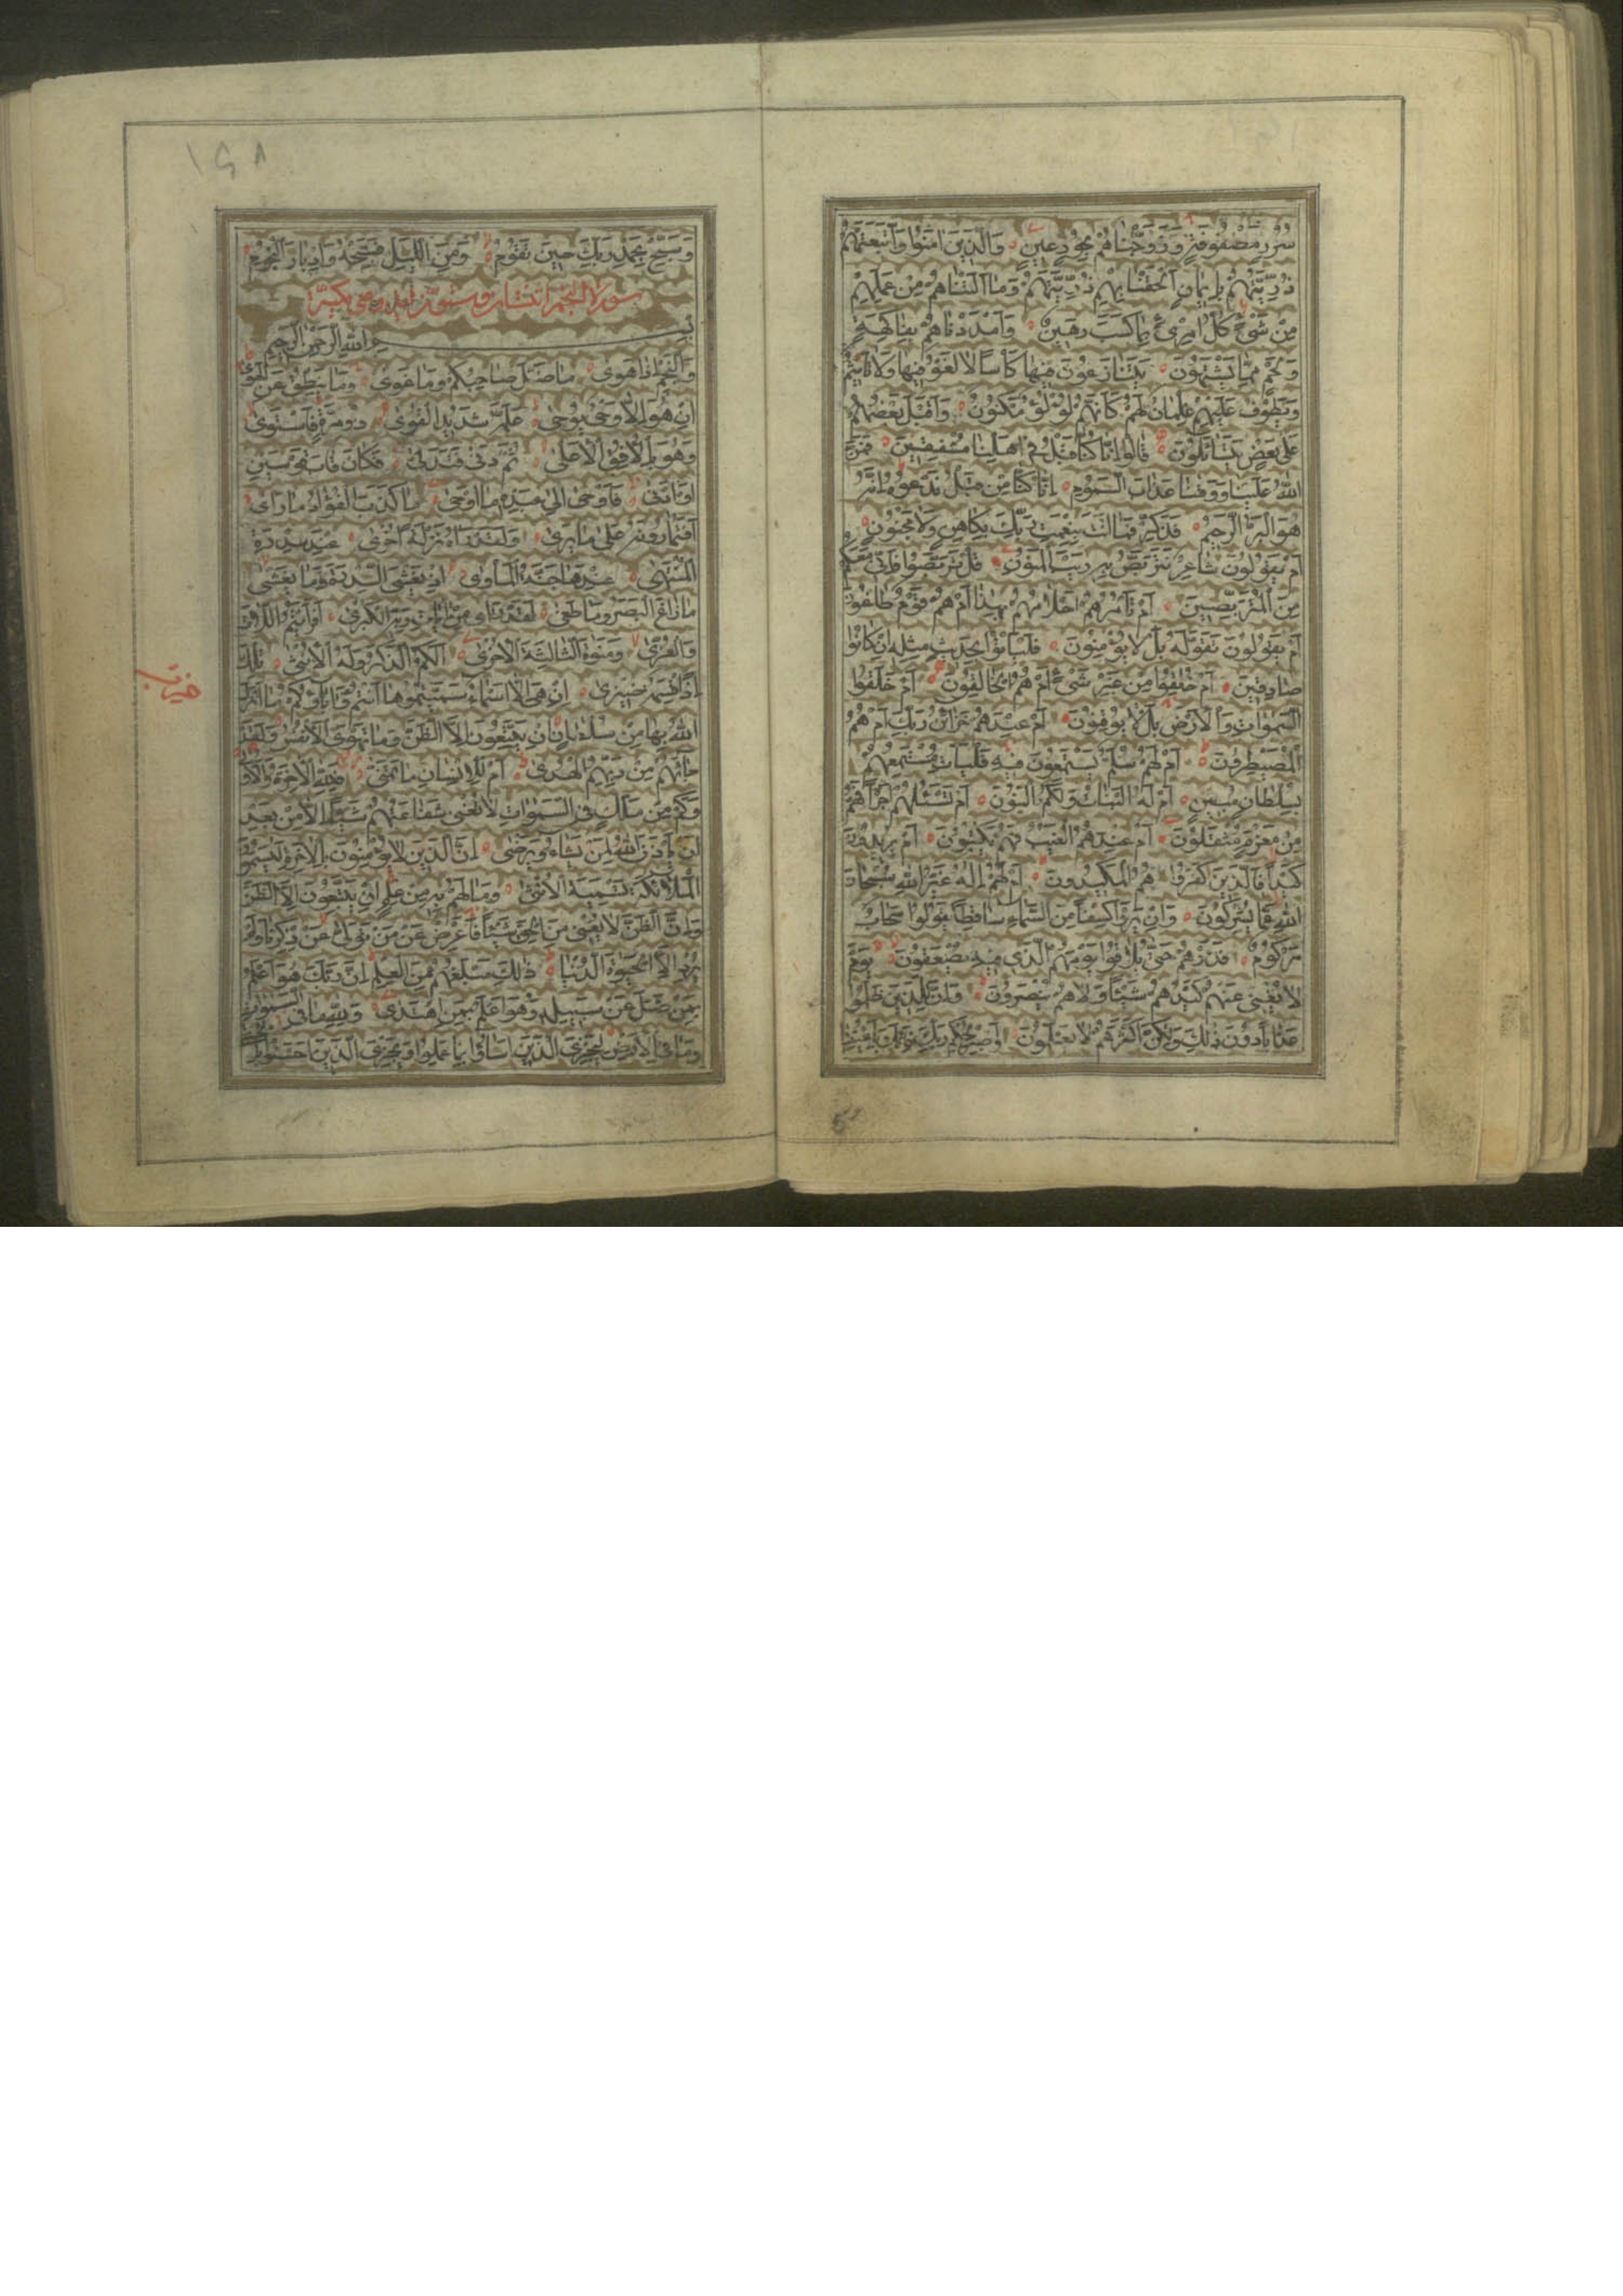 سُرُرٍ مَصْفُوفَةٍ وَزَوَّجْنَاهُمْ بِحُورٍ عِينٍ وَالَّذِينَ امَنُوا وَاتَّبَعَتْهُمْ
ذُرِّيَّتُهُمْ بِإِيمَانٍ اَلْحَقْنَا بِهِمْ ذُرِّيَّتَهُمْ وَمَا اَلَتْنَاهُمْ مِنْ عَمَلِهِمْ
مِنْ شَيْءٍ كُلُّ امْرِئٍ بِمَا كَسَبَ رَهِينٌ وَاَمْدَدْنَاهُمْ بِفَاكِهَةٍ
وَلَحْمٍ مِمَّا يَشْتَهُونَ يَتَنَازَعُونَ فِيهَا كَأْسًا لَا لَغْوٌ فِيهَا وَلَا تَأْثِيمٌ
وَيَطُوفُ عَلَيْهِمْ غِلْمَانٌ لَهُمْ كَاَنَّهُمْ لُؤْلُؤٌ مَكْنُونٌ وَاَقْبَلَ بَعْضُهُمْ
عَلَى بَعْضٍ يَتَسَائَلُونَ قَالُوا اِنَّا كُنَّا قَبْلُ فِي اَهْلِنَا مُشْفِقِينَ فَمَنَّ
اللهُ عَلَيْنَا وَوَقٰينَا عَذَابَ السَّمُومِ اِنَّا كُنَّا مِنْ قَبْلُ نَدْعُوهُ اِنَّهُ
هُوَ الْبَرُّ الرَّحِيمُ فَذَكِّرْ فَمَا اَنْتَ بِنِعْمَتِ رَبِّكَ بِكَاهِنٍ وَلَا مَجْنُونٍ
اَمْ يَقُولُونَ شَاعِرٌ نَتَرَبَّصُ بِهِ رَيْبَ الْمَنُونِ قُلْ تَرَبَّصُوا فَاِنِّي مَعَكُمْ
مِنَ الْمُتَرَبِّصِينَ اَمْ تَأْمُرُهُمْ اَحْلَامُهُمْ بِهٰذَا اَمْ هُمْ قَوْمٌ طَاغُونَ
اَمْ يَقُولُونَ تَقَوَّلَهُ بَلْ لَا يُؤْمِنُونَ فَلْيَأْتُوا بِحَدِيثٍ مِثْلِهِ اِنْ كَانُوا
صَادِقِينَ اَمْ خُلِقُوا مِنْ غَيْرِ شَيْءٍ اَمْ هُمُ الْخَالِقُونَ اَمْ خَلَقُوا
السَّمٰوَاتِ وَالْاَرْضَ بَلْ لَا يُوقِنُونَ اَمْ عِنْدَهُمْ خَزَائِنُ رَبِّكَ اَمْ هُمُ
الْمُصَيْطِرُونَ اَمْ لَهُمْ سُلَّمٌ يَسْتَمِعُونَ فِيهِ فَلْيَأْتِ مُسْتَمِعُهُمْ
بِسُلْطَانٍ مُبِينٍ اَمْ لَهُ الْبَنَاتُ وَلَكُمُ الْبَنُونَ اَمْ تَسْئَلُهُمْ اَجْرًا فَهُمْ
مِنْ مَغْرَمٍ مُثْقَلُونَ اَمْ عِنْدَهُمُ الْغَيْبُ فَهُمْ يَكْتُبُونَ اَمْ يُرِيدُونَ
كَيْدًا فَالَّذِينَ كَفَرُوا هُمُ الْمَكِيدُونَ اَمْ لَهُمْ اِلٰهٌ غَيْرُ اللهِ سُبْحَانَ
اللهِ عَمَّا يُشْرِكُونَ وَاِنْ يَرَوْا كِسْفًا مِنَ السَّمَاءِ سَاقِطًا يَقُولُوا سَحَابٌ
مَرْكُومٌ فَذَرْهُمْ حَتّٰى يُلَاقُوا يَوْمَهُمُ الَّذِي فِيهِ يُصْعَقُونَ يَوْمَ
لَا يُغْنِي عَنْهُمْ كَيْدُهُمْ شَيْئًا وَلَا هُمْ يُنْصَرُونَ وَاِنَّ لِلَّذِينَ ظَلَمُوا
عَذَابًا دُونَ ذٰلِكَ وَلٰكِنَّ اَكْثَرَهُمْ لَا يَعْلَمُونَ وَاصْبِرْ لِحُكْمِ رَبِّكَ فَاِنَّكَ بِاَعْيُنِنَا
١٤٨
وَسَبِّحْ بِحَمْدِ رَبِّكَ حِينَ تَقُومُ وَمِنَ اللَّيْلِ فَسَبِّحْهُ وَاِدْبَارَ النُّجُومِ
سورة النجم اثنتان وستون اية وهي مكية
بِسْمِ اللهِ الرَّحْمٰنِ الرَّحِيمِ
وَالنَّجْمِ اِذَا هَوٰى مَا ضَلَّ صَاحِبُكُمْ وَمَا غَوٰى وَمَا يَنْطِقُ عَنِ الْهَوٰى
اِنْ هُوَ اِلَّا وَحْيٌ يُوحٰى عَلَّمَهُ شَدِيدُ الْقُوٰى ذُو مِرَّةٍ فَاسْتَوٰى
وَهُوَ بِالْاُفُقِ الْاَعْلٰى ثُمَّ دَنٰى فَتَدَلّٰى فَكَانَ قَابَ قَوْسَيْنِ
اَوْ اَدْنٰى فَاَوْحٰى اِلٰى عَبْدِهِ مَا اَوْحٰى مَا كَذَبَ الْفُؤَادُ مَا رَاٰى
اَفَتُمَارُونَهُ عَلٰى مَا يَرٰى وَلَقَدْ رَاٰهُ نَزْلَةً اُخْرٰى عِنْدَ سِدْرَةِ
الْمُنْتَهٰى عِنْدَهَا جَنَّةُ الْمَأْوٰى اِذْ يَغْشَى السِّدْرَةَ مَا يَغْشٰى
مَا زَاغَ الْبَصَرُ وَمَا طَغٰى لَقَدْ رَاٰى مِنْ اٰيَاتِ رَبِّهِ الْكُبْرٰى اَفَرَاَيْتُمُ اللَّاتَ
وَالْعُزّٰى وَمَنٰوةَ الثَّالِثَةَ الْاُخْرٰى اَلَكُمُ الذَّكَرُ وَلَهُ الْاُنْثٰى تِلْكَ
اِذًا قِسْمَةٌ ضِيزٰى اِنْ هِيَ اِلَّا اَسْمَاءٌ سَمَّيْتُمُوهَا اَنْتُمْ وَاٰبَاؤُكُمْ مَا اَنْزَلَ
اللهُ بِهَا مِنْ سُلْطَانٍ اِنْ يَتَّبِعُونَ اِلَّا الظَّنَّ وَمَا تَهْوَى الْاَنْفُسُ وَلَقَدْ
جَاءَهُمْ مِنْ رَبِّهِمُ الْهُدٰى اَمْ لِلْاِنْسَانِ مَا تَمَنّٰى فَلِلّٰهِ الْاٰخِرَةُ وَالْاُولٰى
وَكَمْ مِنْ مَلَكٍ فِي السَّمٰوَاتِ لَا تُغْنِي شَفَاعَتُهُمْ شَيْئًا اِلَّا مِنْ بَعْدِ
اَنْ يَأْذَنَ اللهُ لِمَنْ يَشَاءُ وَيَرْضٰى اِنَّ الَّذِينَ لَا يُؤْمِنُونَ بِالْاٰخِرَةِ لَيُسَمُّونَ
الْمَلٰئِكَةَ تَسْمِيَةَ الْاُنْثٰى وَمَا لَهُمْ بِهِ مِنْ عِلْمٍ اِنْ يَتَّبِعُونَ اِلَّا الظَّنَّ
وَاِنَّ الظَّنَّ لَا يُغْنِي مِنَ الْحَقِّ شَيْئًا فَاَعْرِضْ عَنْ مَنْ تَوَلّٰى عَنْ ذِكْرِنَا وَلَمْ
يُرِدْ اِلَّا الْحَيٰوةَ الدُّنْيَا ذٰلِكَ مَبْلَغُهُمْ مِنَ الْعِلْمِ اِنَّ رَبَّكَ هُوَ اَعْلَمُ
بِمَنْ ضَلَّ عَنْ سَبِيلِهِ وَهُوَ اَعْلَمُ بِمَنِ اهْتَدٰى وَلِلّٰهِ مَا فِي السَّمٰوَاتِ
وَمَا فِي الْاَرْضِ لِيَجْزِيَ الَّذِينَ اَسَاؤُا بِمَا عَمِلُوا وَيَجْزِيَ الَّذِينَ اَحْسَنُوا
حزب